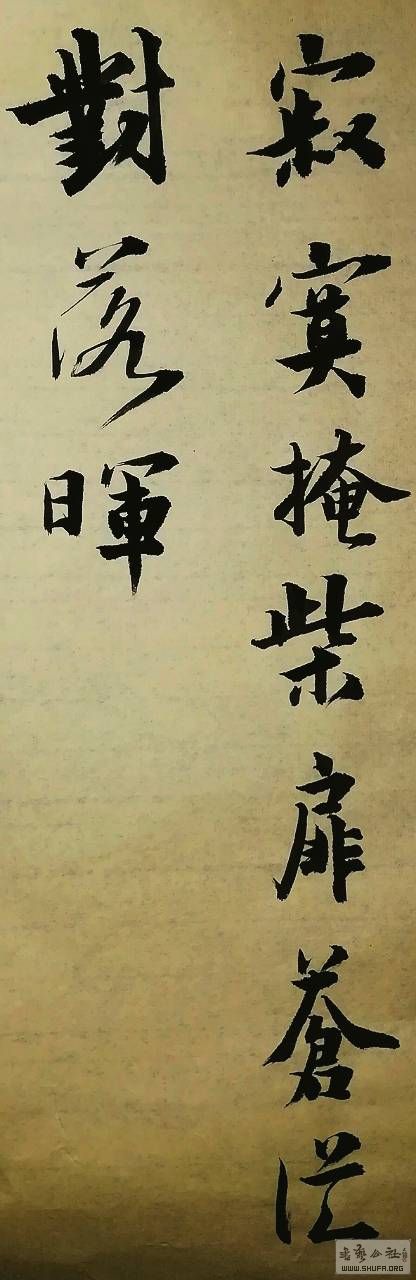 寂寞掩柴扉蒼茫
對落暉
WWW.SHUFA.ORG